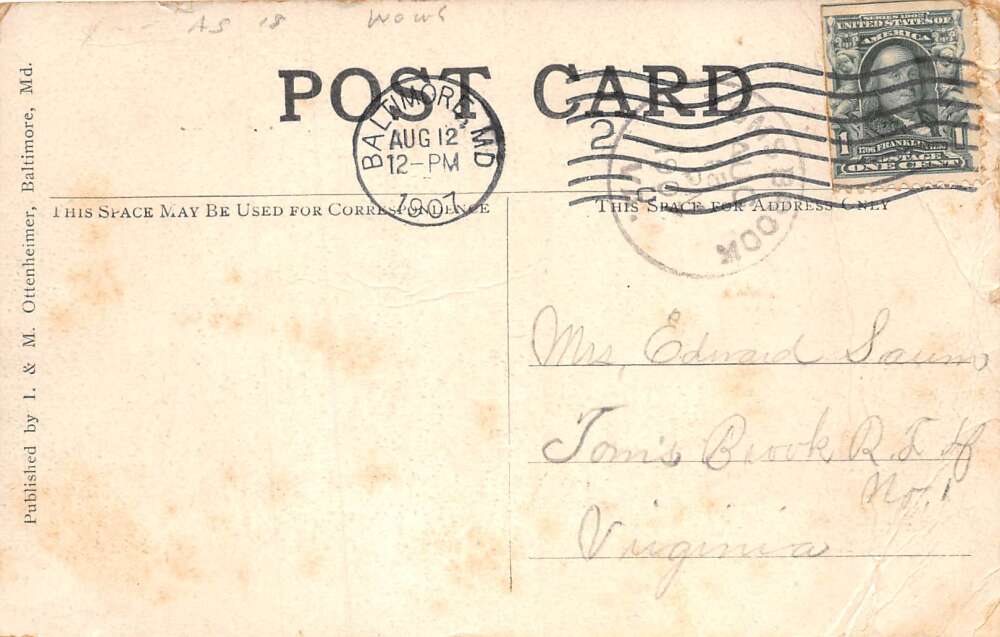 AS IS
POST CARD
BALTIMORE, MD
AUG 12
12-PM
1907
2
SERIES 1902
UNITED STATES OF
AMERICA
1706 FRANKLIN 1790
POSTAGE
1 1
ONE CENT
THIS SPACE MAY BE USED FOR CORRESPONDENCE
THIS SPACE FOR ADDRESS ONLY
TOMS BROOK
VA.
Published by I. & M. Ottenheimer, Baltimore, Md.
Mrs, Edward Saum,
Tom's Brook R. F. D
No, 1
Virginia